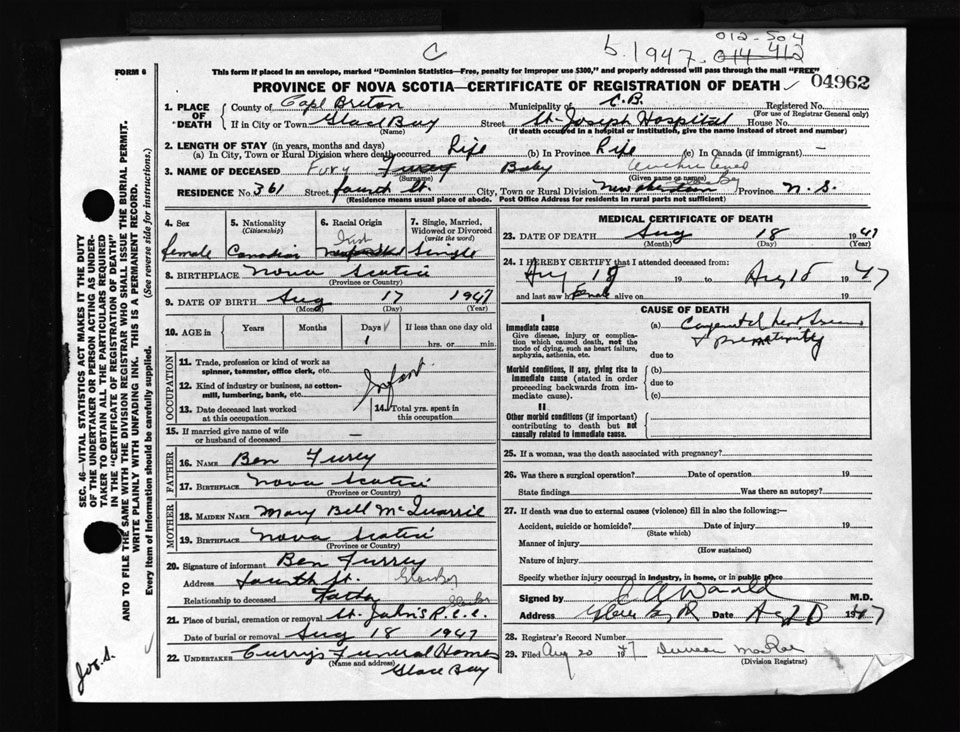 C
b. 1947
012-504
014-412
FORM 6
This form if placed in an envelope, marked "Dominion Statistics—Free, penalty for improper use $300," and properly addressed will pass through the mail "FREE"
PROVINCE OF NOVA SCOTIA—CERTIFICATE OF REGISTRATION OF DEATH 04962
1. PLACE OF DEATH
County of Cape Breton Municipality of C.B. Registered No.
(For use of Registrar General only)
If in City or Town Glace Bay Street St. Joseph Hospital House No.
(Name) (If death occurred in a hospital or institution, give the name instead of street and number)
2. LENGTH OF STAY (in years, months and days)
(a) In City, Town or Rural Division where death occurred Life (b) In Province Life (c) In Canada (if immigrant) —
3. NAME OF DECEASED Fury Baby
(Surname) (Given name or names)
RESIDENCE No. 361 Street Fourth St. City, Town or Rural Division New Aberdeen Province N.S.
(Residence means usual place of abode. Post Office Address for residents in rural parts not sufficient)
4. Sex
female
5. Nationality
(Citizenship)
Canadian
6. Racial Origin
Irish
7. Single, Married, Widowed or Divorced
(write the word)
Single
8. BIRTHPLACE Nova Scotia
(Province or Country)
9. DATE OF BIRTH Aug 17 1947
(Month) (Day) (Year)
10. AGE in Years Months Days If less than one day old
1 hrs. or min.
OCCUPATION
11. Trade, profession or kind of work as spinner, teamster, office clerk, etc.
Infant
12. Kind of industry or business, as cotton-mill, lumbering, bank, etc.
13. Date deceased last worked at this occupation
14. Total yrs. spent in this occupation
15. If married give name of wife or husband of deceased —
FATHER
16. NAME Ben Furey
17. BIRTHPLACE Nova Scotia
(Province or Country)
MOTHER
18. MAIDEN NAME Mary Bell McQuarrie
19. BIRTHPLACE Nova Scotia
(Province or Country)
20. Signature of informant Ben Furrey
Address Fourth St. Glace Bay
Relationship to deceased Father
21. Place of burial, cremation or removal St. John's R.C.C.
Date of burial or removal Aug 18 1947
22. UNDERTAKER Curry's Funeral Home
(Name and address)
Glace Bay
MEDICAL CERTIFICATE OF DEATH
23. DATE OF DEATH Aug 18 1947
(Month) (Day) (Year)
24. I HEREBY CERTIFY that I attended deceased from:
Aug 18 19 to Aug 18 1947
and last saw h alive on 19
CAUSE OF DEATH
I
Immediate cause
Give disease, injury or complication which caused death, not the mode of dying, such as heart failure, asphyxia, asthenia, etc.
(a) Congenital heart disease
& prematurity
due to
Morbid conditions, if any, giving rise to immediate cause (stated in order proceeding backwards from immediate cause).
(b)
due to
(c)
II
Other morbid conditions (if important) contributing to death but not causally related to immediate cause.
25. If a woman, was the death associated with pregnancy?
26. Was there a surgical operation? Date of operation 19
State findings Was there an autopsy?
27. If death was due to external causes (violence) fill in also the following:—
Accident, suicide or homicide? Date of injury 19
(State which)
Manner of injury
(How sustained)
Nature of injury
Specify whether injury occurred in industry, in home, or in public place
Signed by M.D.
Address Glace Bay Date 1947
28. Registrar's Record Number
29. Filed Aug 20 47 Duncan MacRae
(Division Registrar)
SEC. 46—VITAL STATISTICS ACT MAKES IT THE DUTY
OF THE UNDERTAKER OR PERSON ACTING AS UNDER-
TAKER TO OBTAIN ALL THE PARTICULARS REQUIRED
IN THE "CERTIFICATE OF REGISTRATION OF DEATH"
AND TO FILE THE SAME WITH THE DIVISION REGISTRAR WHO SHALL ISSUE THE BURIAL PERMIT.
WRITE PLAINLY WITH UNFADING INK. THIS IS A PERMANENT RECORD.
Every item of information should be carefully supplied. (See reverse side for instructions.)
Jos. S.